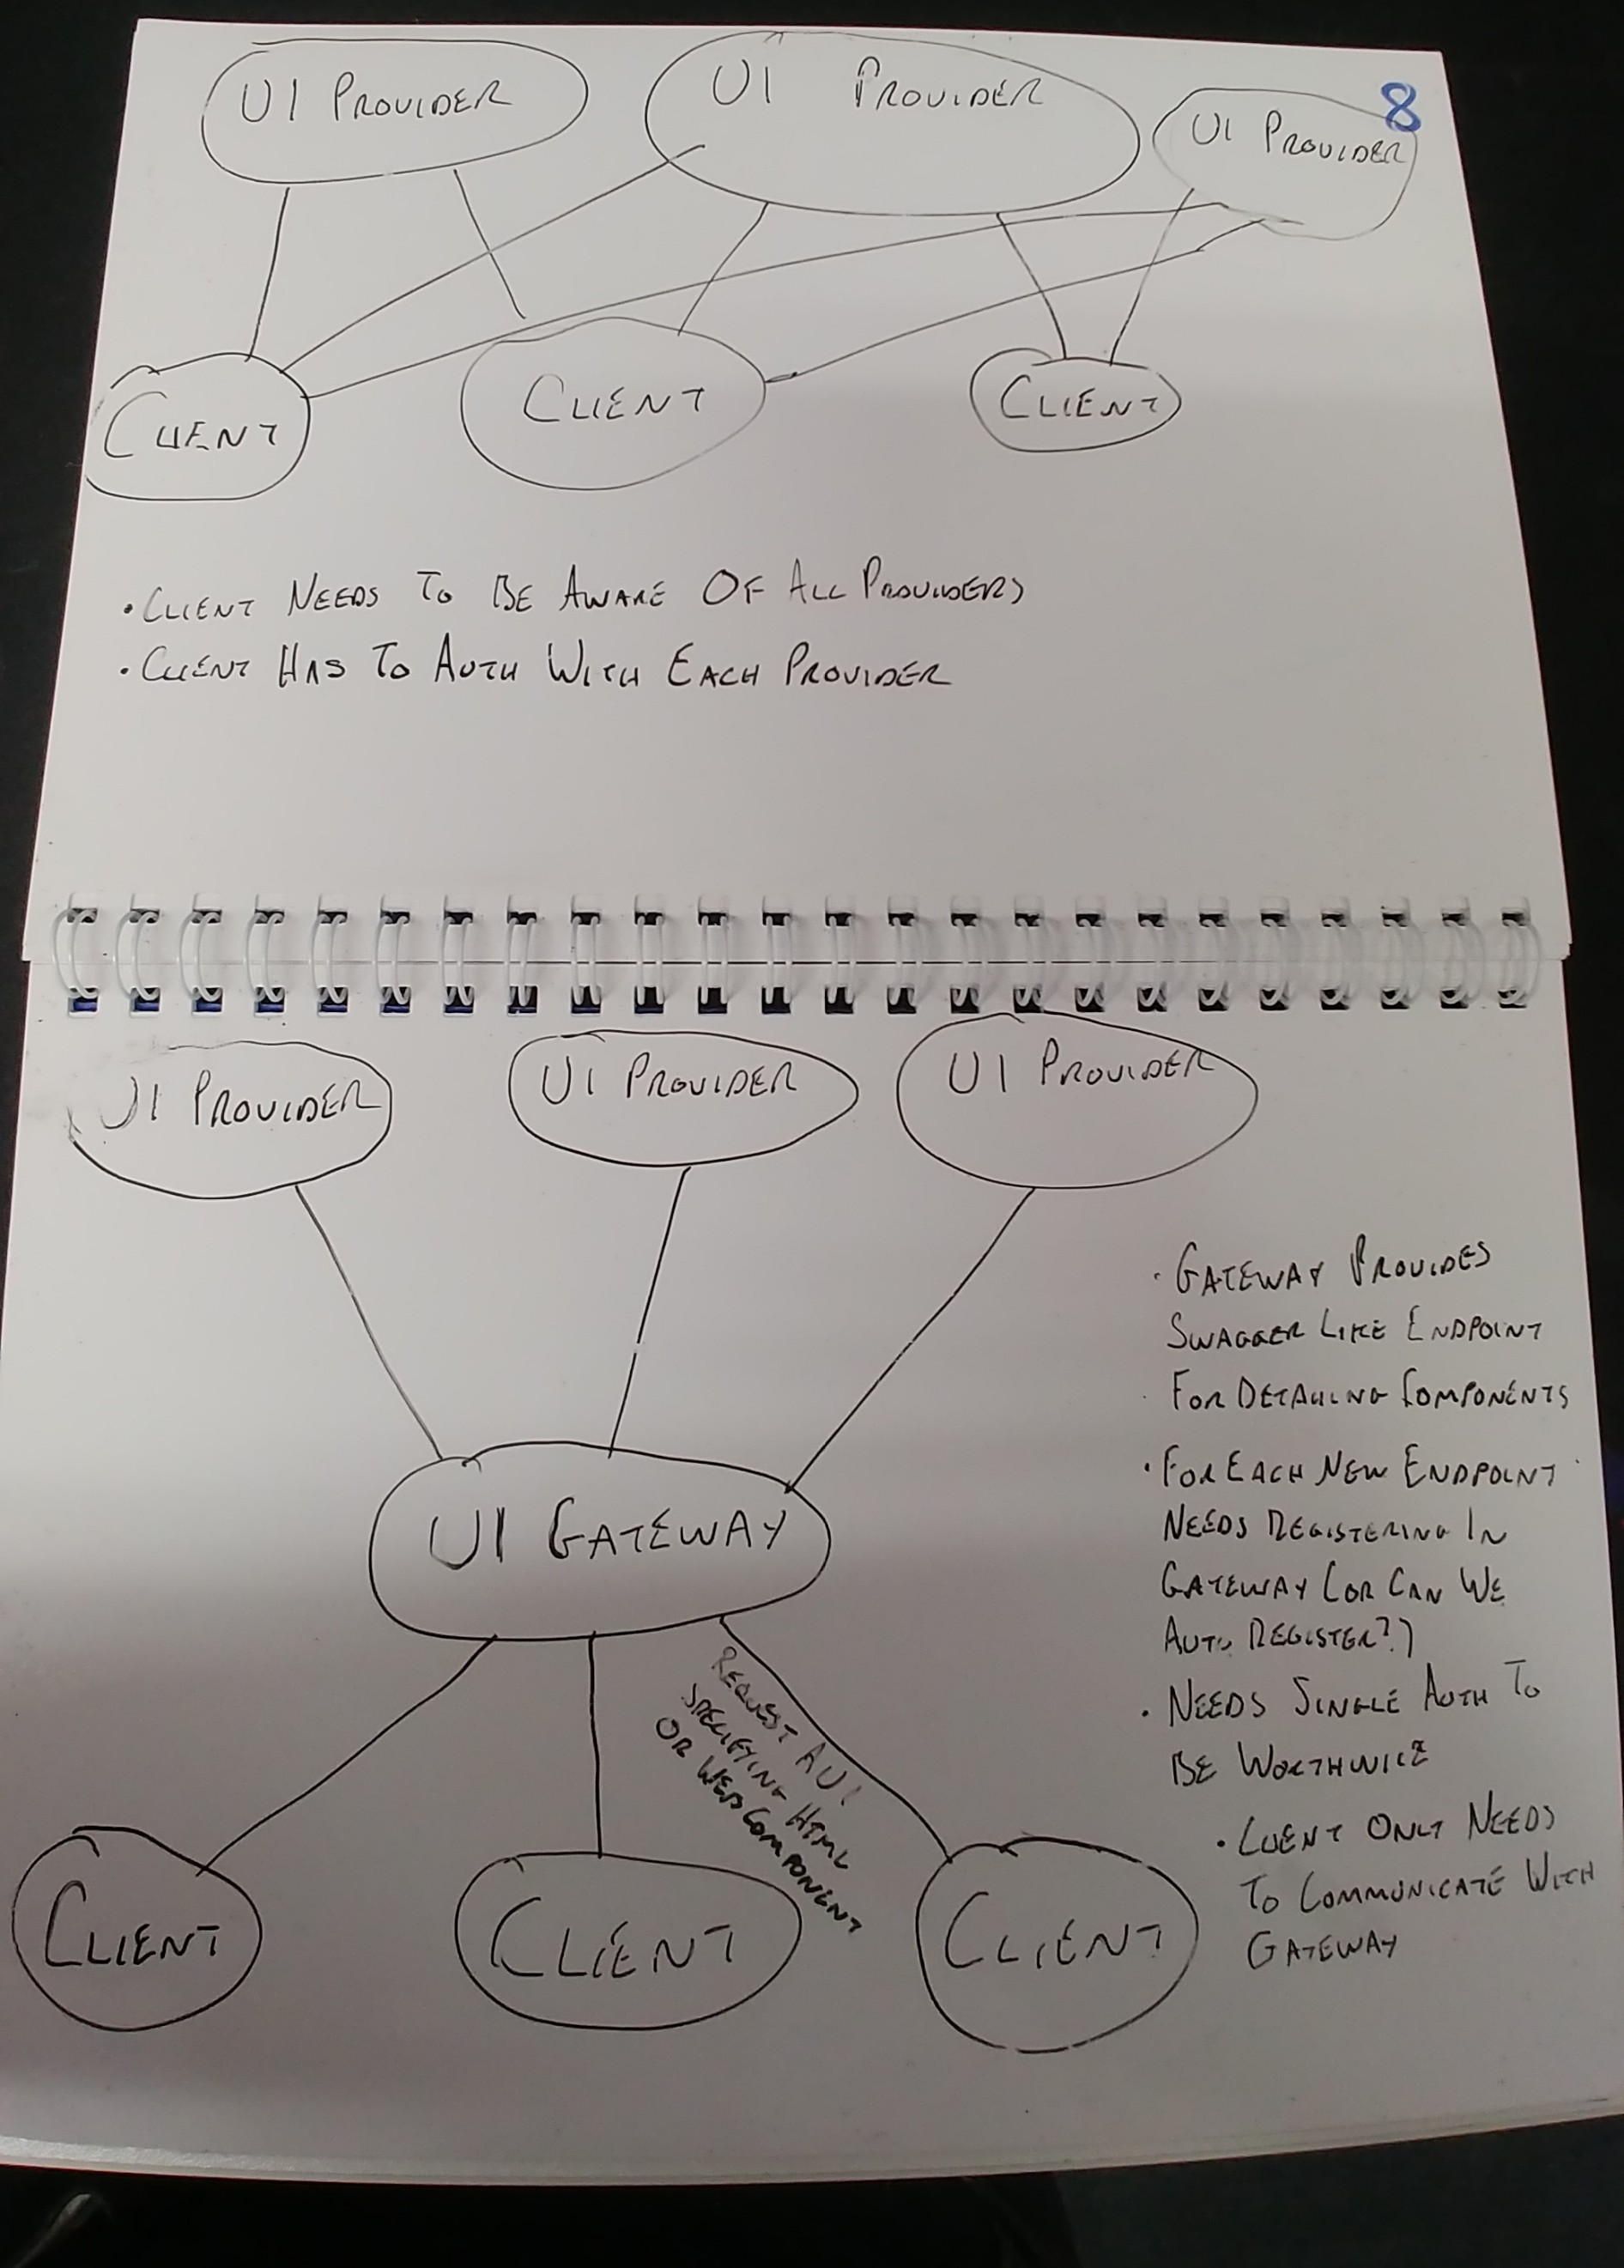 8
UI PROVIDER
UI PROVIDER
UI PROVIDER
CLIENT
CLIENT
CLIENT
• CLIENT NEEDS TO BE AWARE OF ALL PROVIDERS
• CLIENT HAS TO AUTH WITH EACH PROVIDER
UI PROVIDER
UI PROVIDER
UI PROVIDER
UI GATEWAY
REQUEST A UI
SPECIFYING HTML
OR WEB COMPONENT
CLIENT
CLIENT
CLIENT
• GATEWAY PROVIDES
SWAGGER LIKE ENDPOINT
FOR DETAILING COMPONENTS
• FOR EACH NEW ENDPOINT
NEEDS REGISTERING IN
GATEWAY (OR CAN WE
AUTO REGISTER?)
• NEEDS SINGLE AUTH TO
BE WORTHWILE
• CLIENT ONLY NEEDS
TO COMMUNICATE WITH
GATEWAY